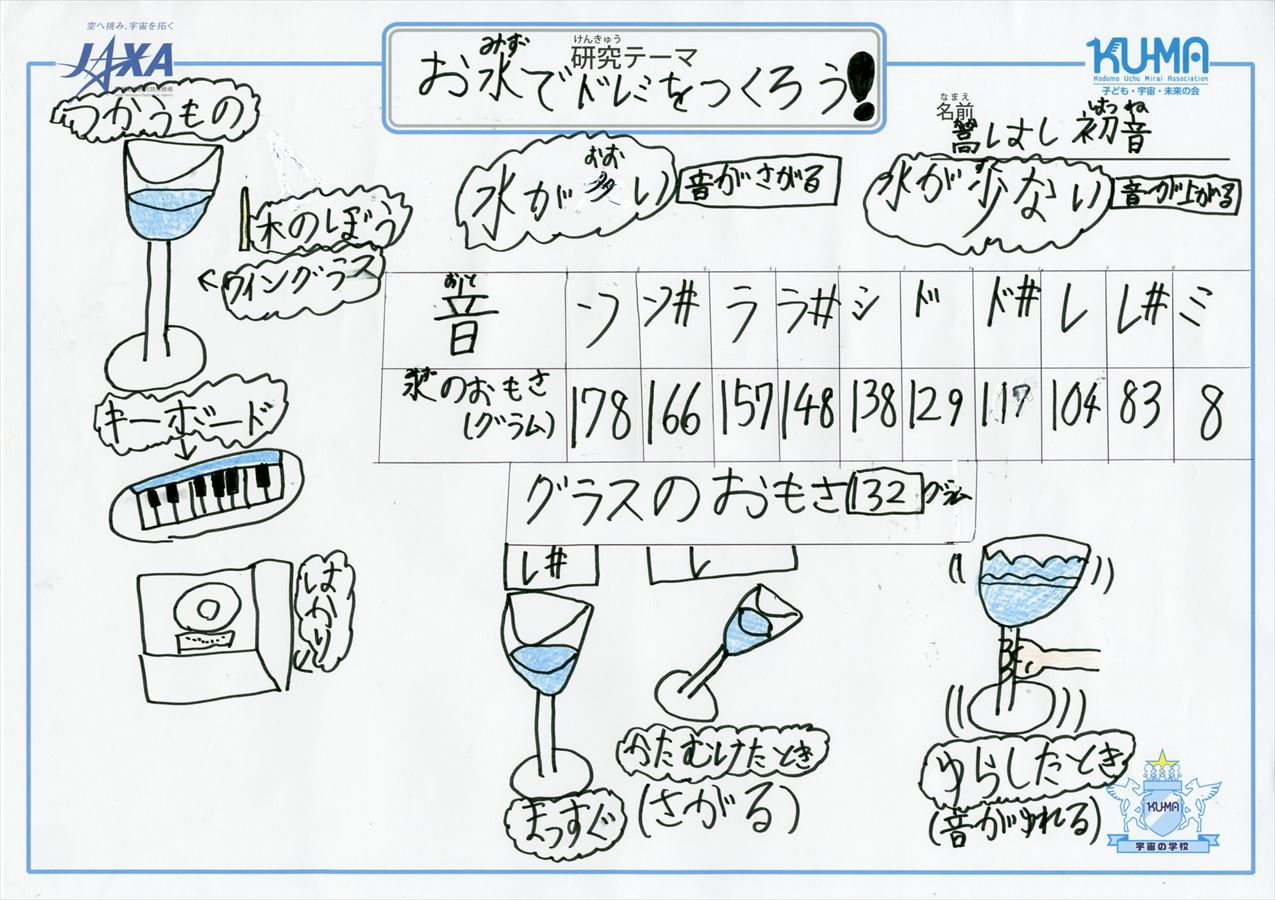 空へ挑み、宇宙を拓く
JAXA
けんきゅう
研究テーマ
みず
お水でドレミをつくろう!
KU-MA
Kodomo Uchu Mirai Association
子ども・宇宙・未来の会
なまえ
名前
はつ ね
はし 初音
つかうもの
木のぼう
←ワイングラス
キーボード
はかり
おお
水が多い 音がさがる
すく
水が少ない 音が上がる
おと
音 ソ ソ# ラ ラ# シ ド ド# レ レ# ミ
みず
水のおもさ(グラム) 178 166 157 148 138 129 117 104 83 8
グラスのおもさ132グラム
レ# レ
まっすぐ
かたむけたとき
(さがる)
ゆらしたとき
(音がゆれる)
KU-MA
宇宙の学校